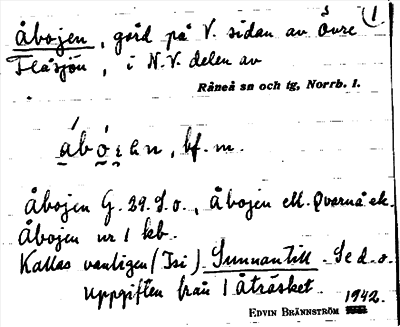 Åbojen, gård på V. sidan av Övre (1
Flåsjön, i N.V. delen av
Råneå sn och tg, Norrb. l.
bf. m.
Åbojen G. 29. J. o., Åbojen ell. Qvarnå ek.
Åbojen nr 1 kb.
Kallas vanligen (Isi) Sunnantill. Se d. o.
Uppgiften från 1 Åträsket.
EDVIN BRÄNNSTRÖM 1942.